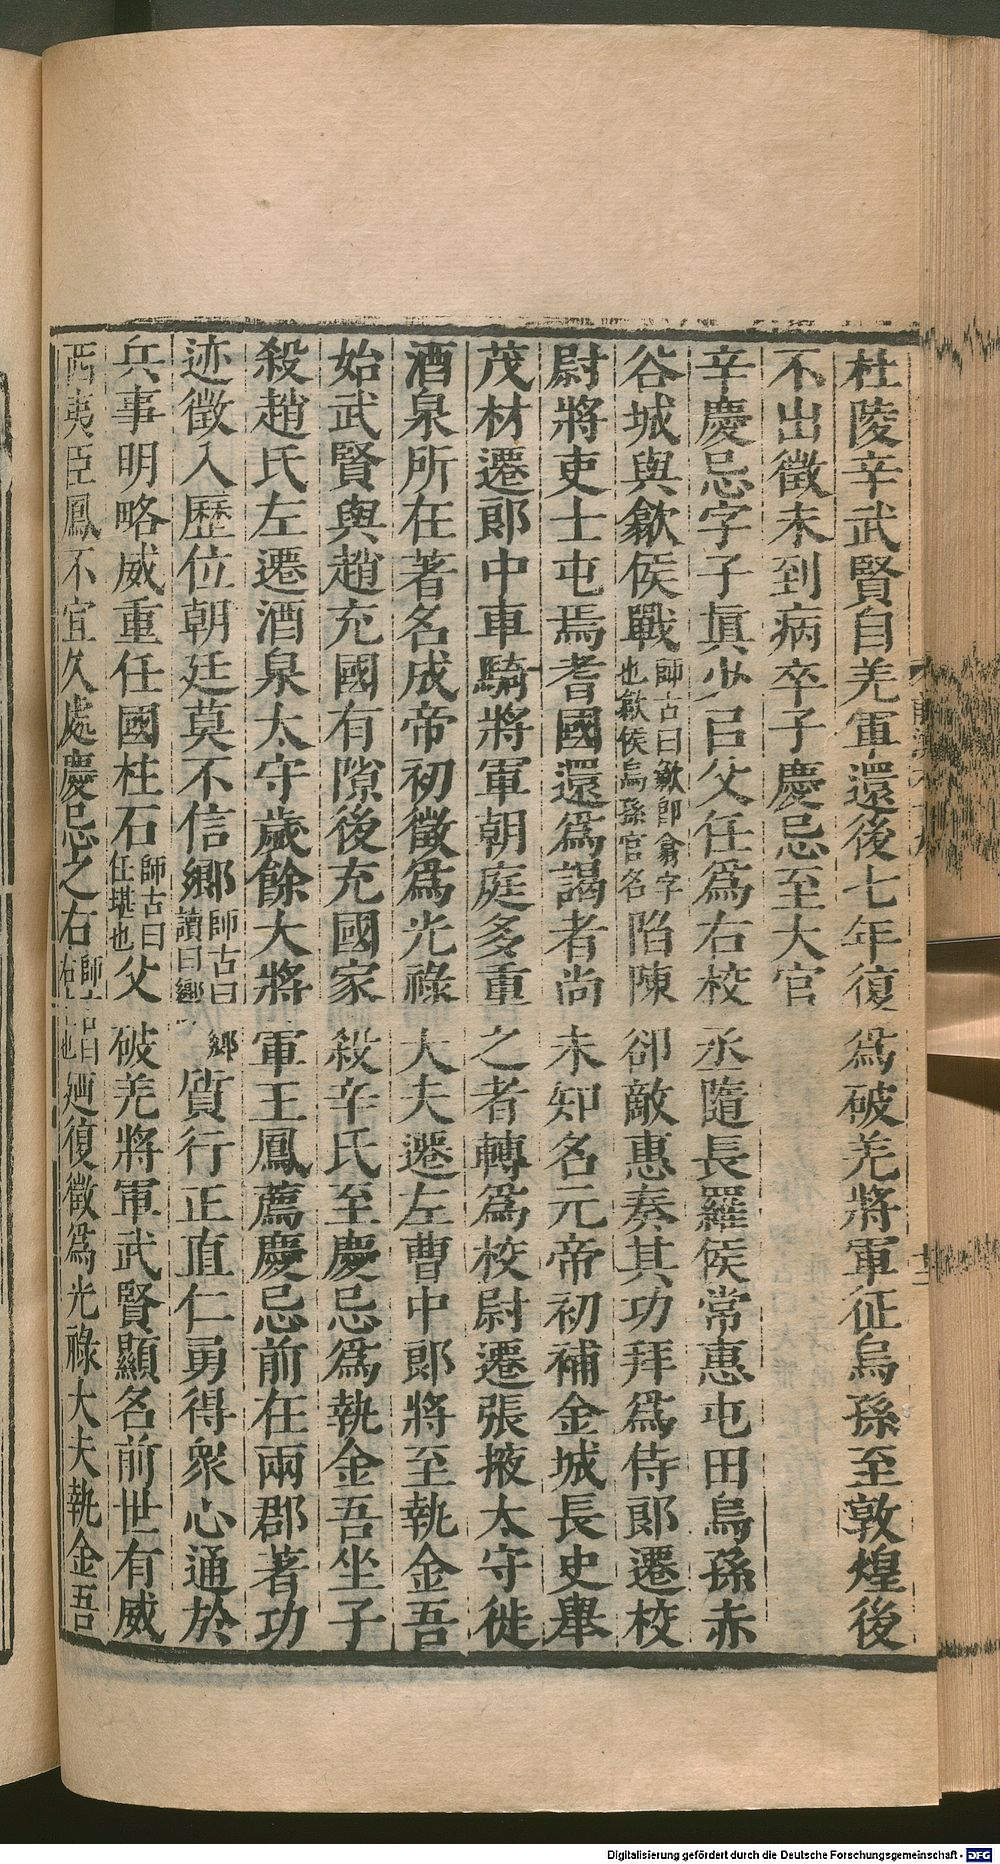 杜陵辛武賢自羌軍還後七年復爲破羌將軍征烏孫至敦煌後
不出徵未到病卒子慶忌至大官
辛慶忌字子眞少㠯父任爲右校丞隨長羅侯常惠屯田烏孫赤
谷城與歙侯戰師古曰歙卽翕字也歙侯烏孫官名陷陳卻敵惠奏其功拜爲侍郞遷校
尉將吏士屯焉耆國還爲謁者尚未知名元帝初補金城長史舉
茂材遷郞中車騎將軍朝庭多重之者轉爲校尉遷張掖太守徙
酒泉所在著名成帝初徵爲光祿大夫遷左曹中郞將至執金吾
始武賢與趙充國有隙後充國家殺辛氏至慶忌爲執金吾坐子
殺趙氏左遷酒泉太守歲餘大將軍王鳳薦慶忌前在兩郡著功
迹徵入歷位朝廷莫不信鄉師古曰鄉讀曰嚮質行正直仁勇得衆心通於
兵事明略威重任國柱石師古曰任堪也父破羌將軍武賢顯名前世有威
西夷臣鳳不宜久處慶忌之右師古曰右上也廼復徵爲光祿大夫執金吾
Digitalisierung gefördert durch die Deutsche Forschungsgemeinschaft - DFG